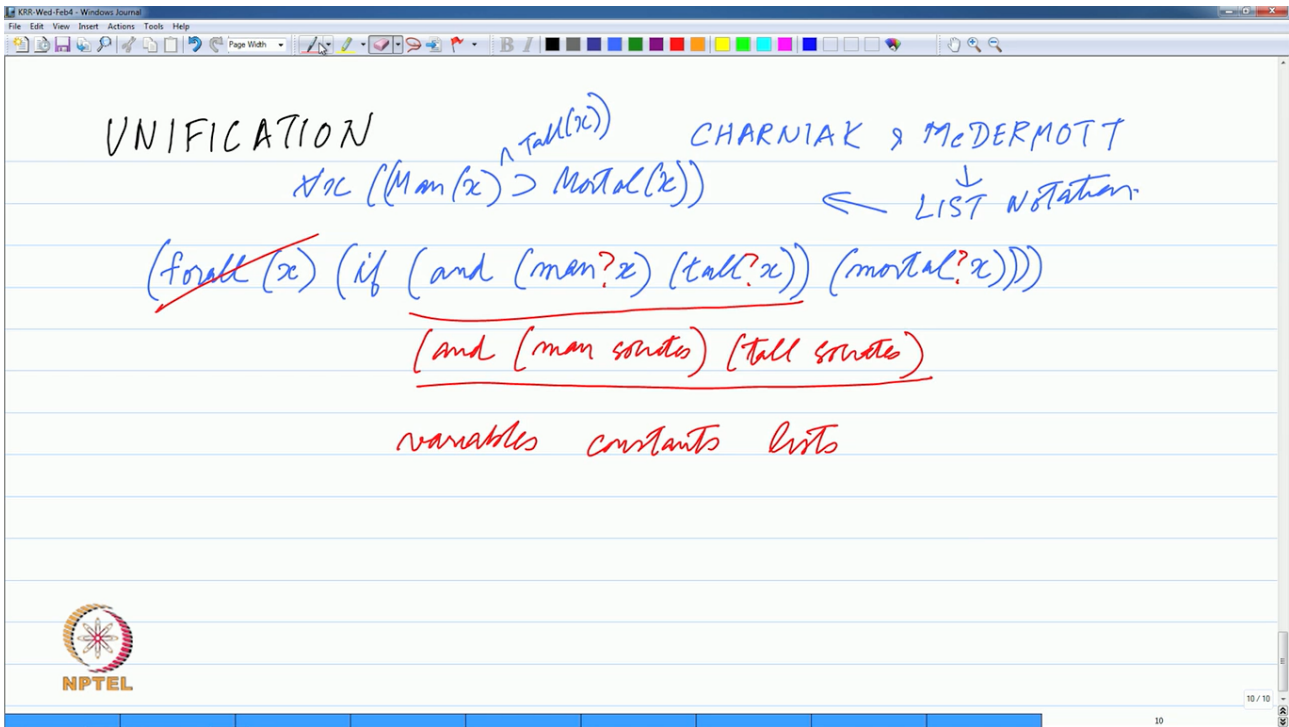 KRR-Wed-Feb4 - Windows Journal
File Edit View Insert Actions Tools Help
Page Width
B I
UNIFICATION
∧ Tall(x))
CHARNIAK & McDERMOTT
∀x ((Man(x) ⊃ Mortal(x))
↓
← LIST NOTATION
(forall (x) (if (and (man?x) (tall?x)) (mortal?x))))
(and (man socrates) (tall socrates)
variables constants lists
NPTEL
10 / 10
10